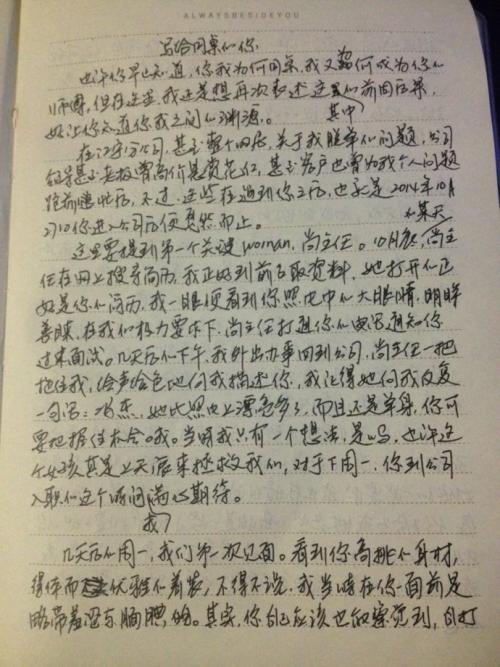 ALWAYSBESIDEYOU
写给同桌的你
也许你早已知道,你我为何同桌,我又为何成为你的
师傅,但在这里,我还是想再次表述这里的前因后果,
其中
好让你知道你我之间的渊源。
在江宁分公司,甚至整个四层,关于我脱单的问题,公司
领导甚至老板曾高价悬赏花红,甚至客户也曾为我个人问题
跑前跑后,不过,这些在遇到你之后,也就是2014年10月
的某天
27日你进公司后便戛然而止。
这里要提到第一个关键woman,尚主任。10月底,尚主
任在网上搜寻简历,我正好到前台取资料,她打开的正
好是你的简历,我一眼便看到你照片中的大眼睛,明眸
善睐,在我的极力要求下,尚主任打通你的电话通知你
过来面试。几天后的下午,我外出办事回到公司,尚主任一把
拖住我,绘声绘色地向我描述你,我记得她向我反复
一句话:,她比照片上漂亮多了,而且还是单身,你可
要把握住机会哦。当时我只有一个想法,是吗,也许这
个女孩真是上天派来拯救我的,对于下周一,你到公司
入职的这个瞬间满心期待。
我
几天后的周一,我们第一次见面。看到你高挑的身材,
得体而优雅的着装,不得不说,我当时在你面前是
略带羞涩与腼腆的。其实,你自己应该也能察觉到,自打